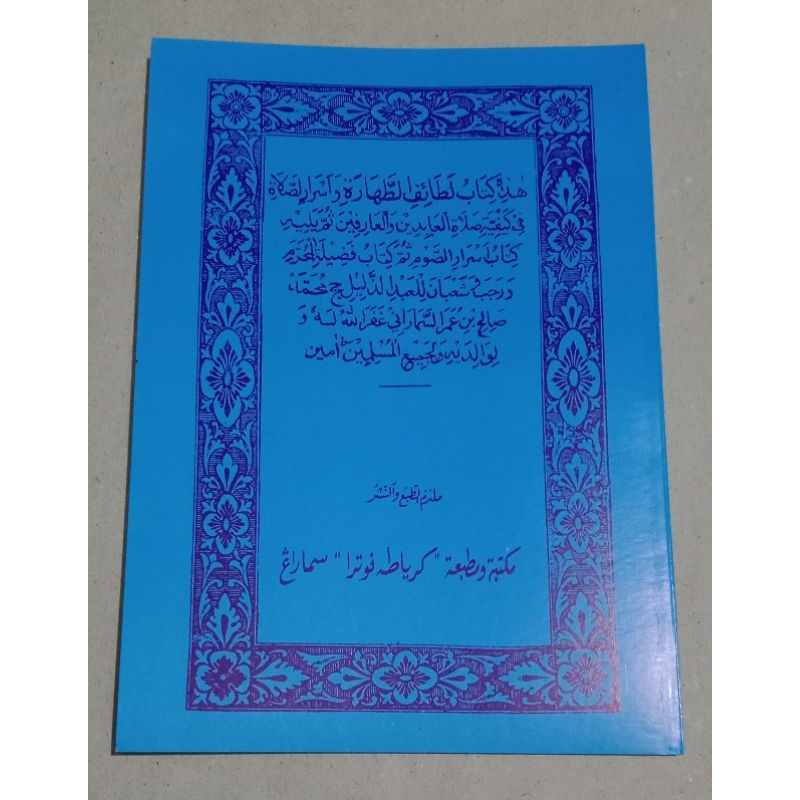 هٰذِهِ كِتَابُ لَطَائِفِ الطَّهَارَةِ وَاَسْرَارِ الصَّلَاةِ
فِى كَيْفِيَّةِ صَلَاةِ الْعَابِدِيْنَ وَالْعَارِفِيْنَ ثُمَّ يَلِيْهِ
كِتَابُ اَسْرَارِ الصَّوْمِ ثُمَّ كِتَابُ فَضِيْلَةِ الْمُحَرَّمِ
وَرَجَبَ وَشَعْبَانَ لِلْعَبْدِ الذَّلِيْلِ حج مُحَمَّدْ
صَالِحْ بِنْ عُمَرَ السَّمَارَانِيْ غَفَرَ اللهُ لَهُ وَ
لِوَالِدَيْهِ وَلِجَمِيْعِ الْمُسْلِمِيْنَ اٰمين
ملتزم الطبع والنشر
مكتبة ومطبعة "كرياطه فوترا" سماراڠ